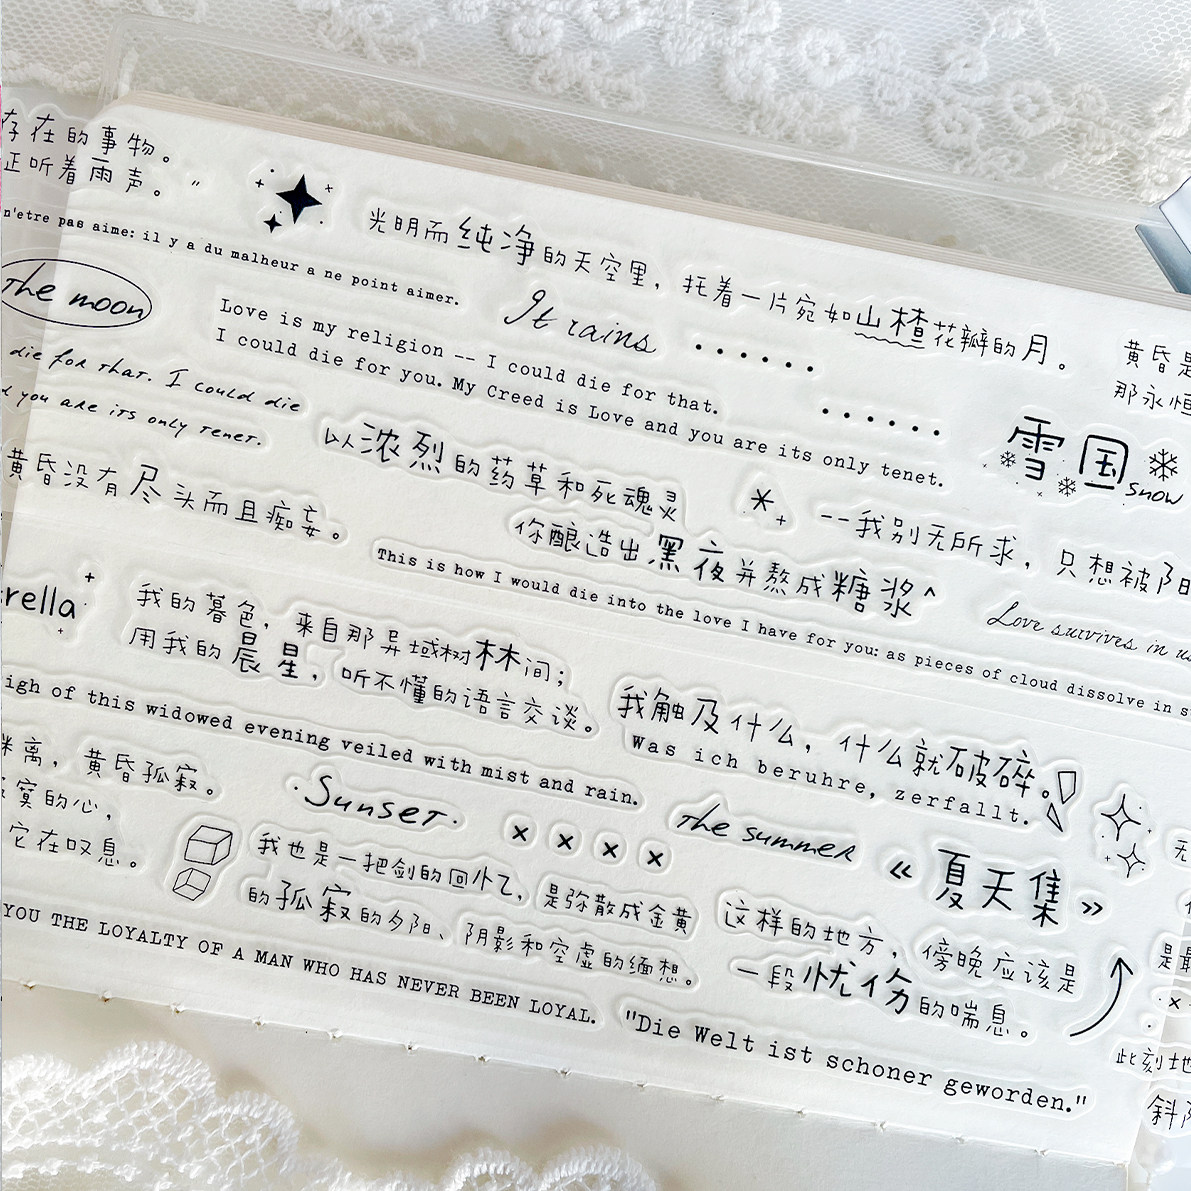 存在的事物。
正听着雨声。"
n'etre pas aime: il y a du malheur a ne point aimer.
光明而纯净的天空里，托着一片宛如山楂花瓣的月。
The moon
It rains
Love is my religion -- I could die for that.
I could die for you. My Creed is Love and you are its only tenet.
黄昏是
那永恒
die for that. I could die
you are its only tenet.
雪国
snow
以浓烈的药草和死魂灵
你酿造出黑夜并熬成糖浆^
黄昏没有尽头而且痴妄。
--我别无所求，只想被阳
This is how I would die into the love I have for you: as pieces of cloud dissolve in s
Love survives in us
rella
我的暮色，来自那异域树林间；
用我的晨星，听不懂的语言交谈。
igh of this widowed evening veiled with mist and rain.
我触及什么，什么就破碎。
Was ich beruhre, zerfallt.
离，黄昏孤寂。
寞的心，
它在叹息。
Sunset.
× × × ×
The summer
《夏天集》
我也是一把剑的回忆，是弥散成金黄
的孤寂的夕阳、阴影和空虚的缅想。
这样的地方，傍晚应该是
一段忧伤的喘息。
YOU THE LOYALTY OF A MAN WHO HAS NEVER BEEN LOYAL.
"Die Welt ist schoner geworden."
是最
此刻地
斜阳